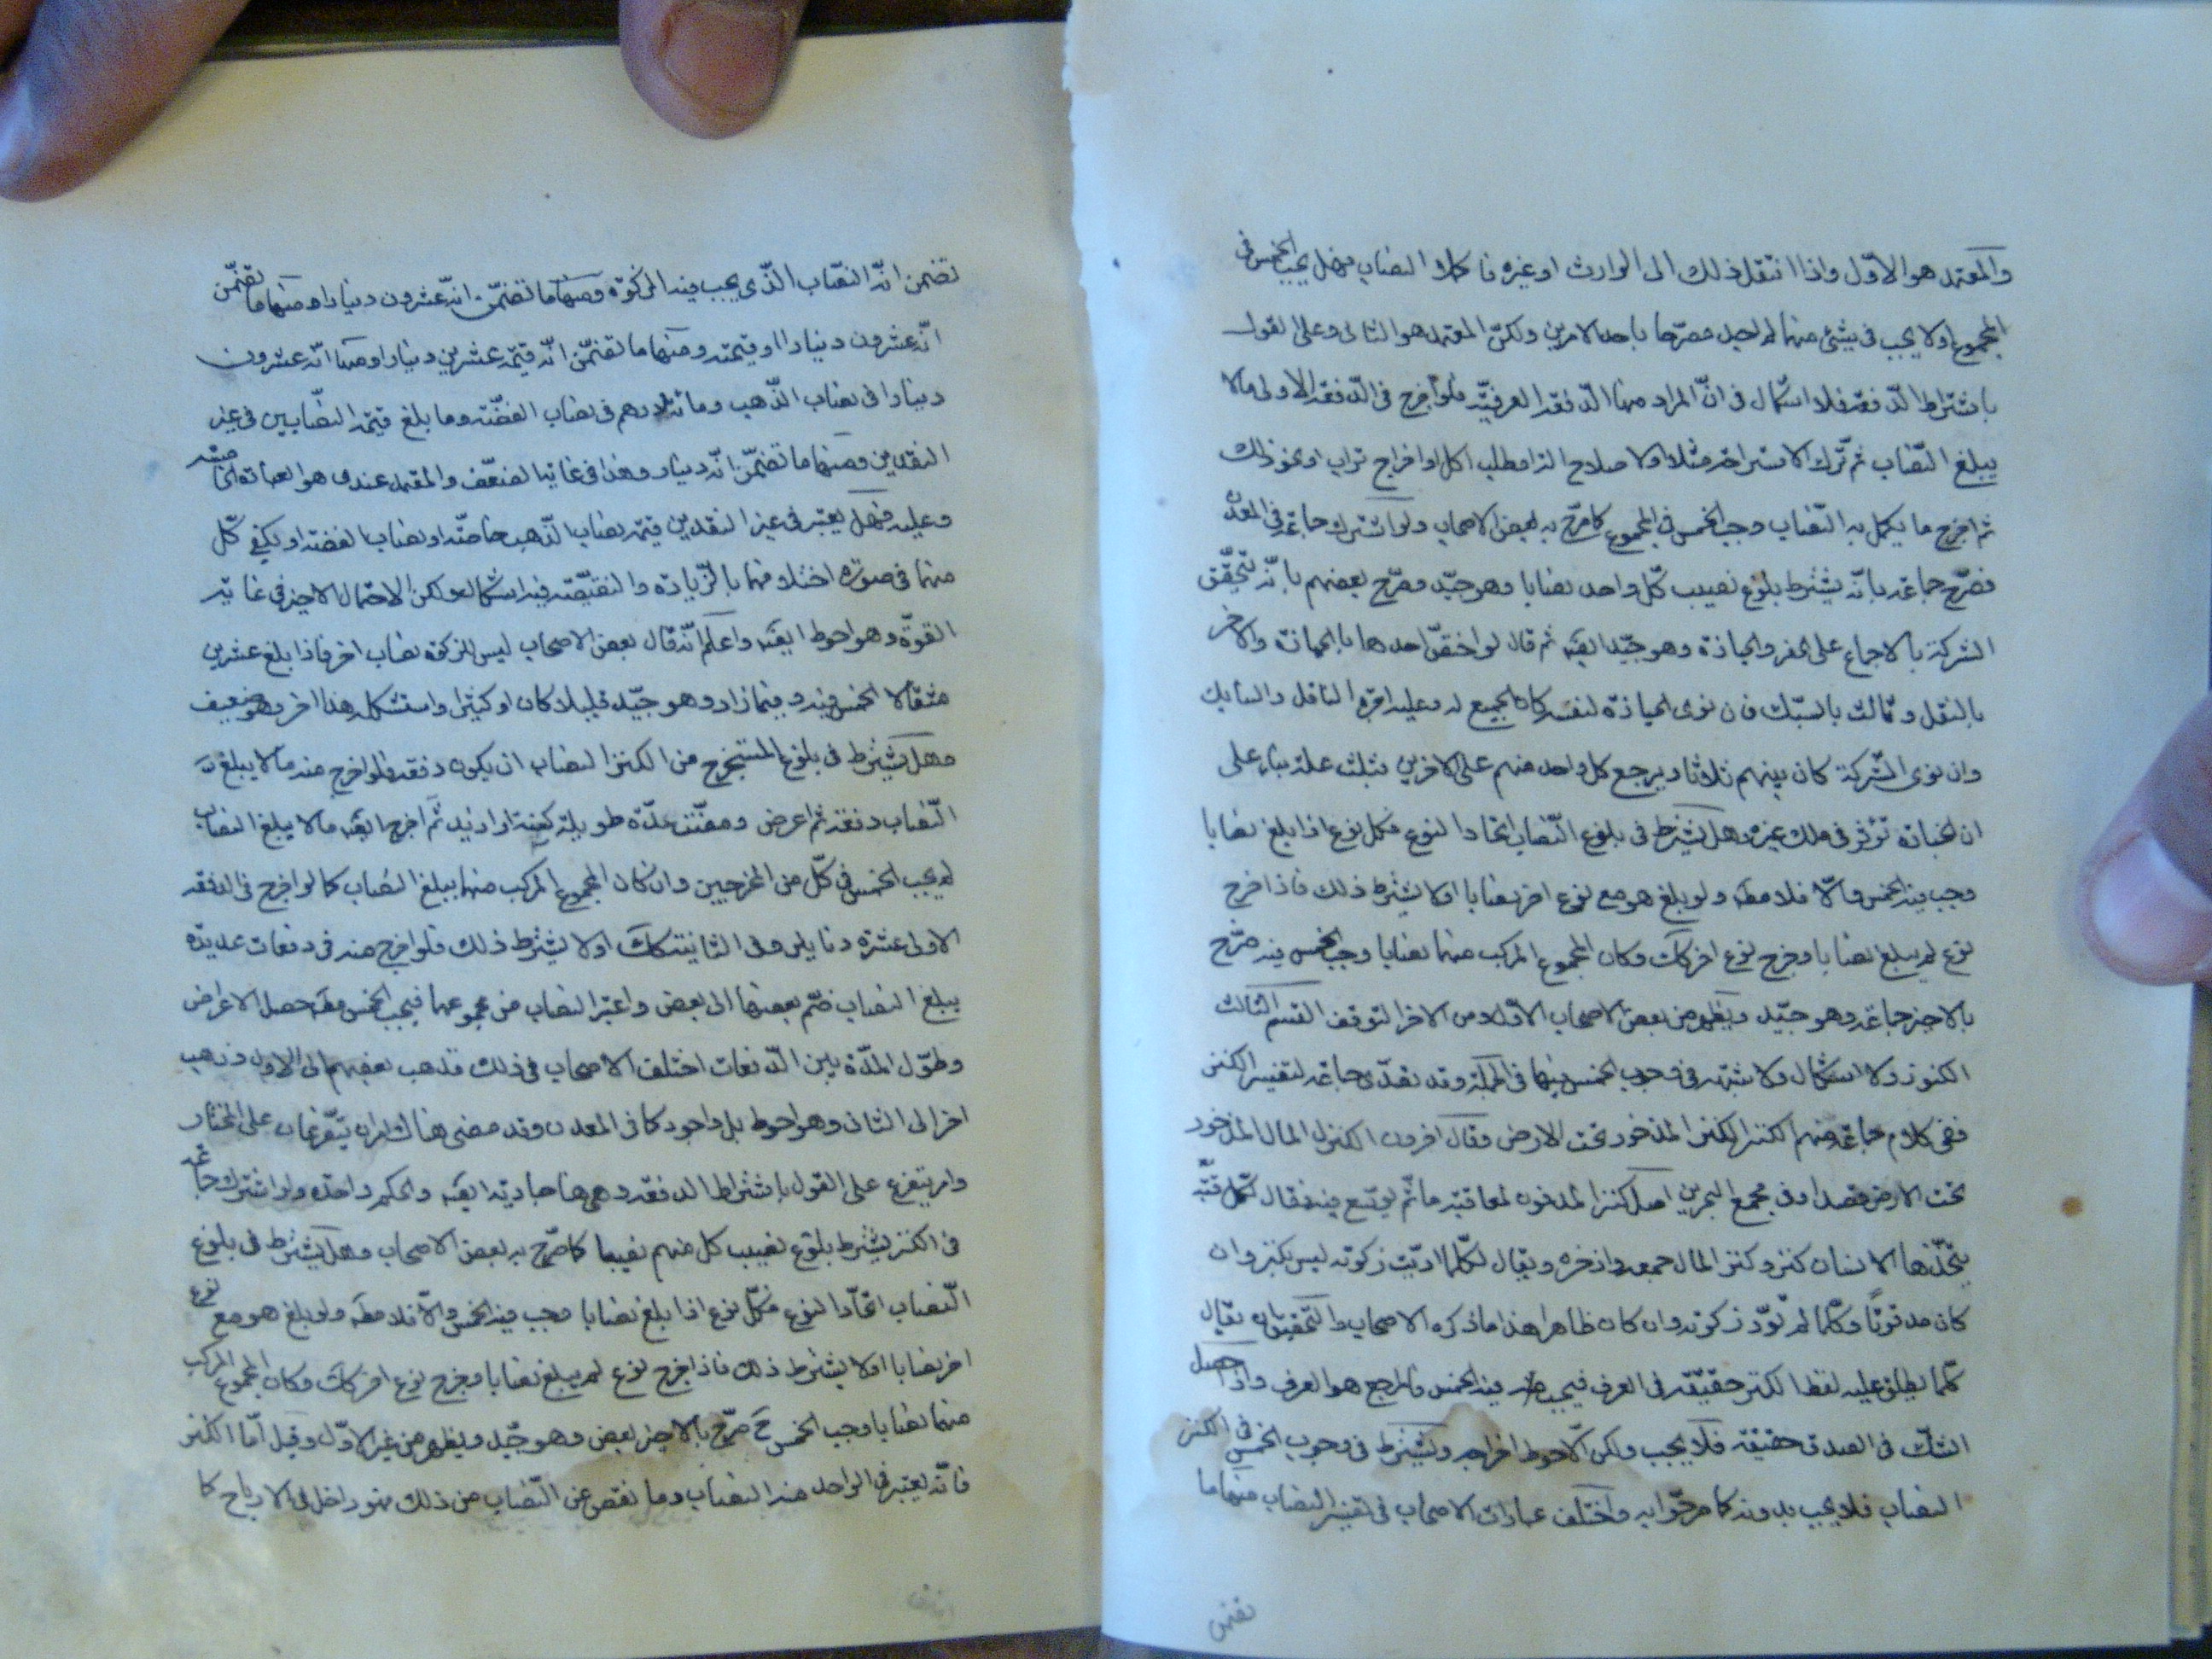 والمعتمد هو الاوّل واذا انتقل ذلك الى الوارث او غيره فاكمل النصاب فهل يجب الخمس فى
المجموع او لا يجب فى شئ منهما لم اجد مصرّحا باحد الامرين ولكنّ المعتمد هو الثانى وعلى القول
باشتراط الدّفعة فلا اشكال فى انّ المراد منها الدّفعة العرفيّة فلو اخرج فى الدّفعة الاولى ما لا
يبلغ النّصاب ثم ترك الاستراحة مثلا او لاصلاح الة او طلب اكل او اخراج تراب او نحو ذلك
ثم اخرج ما يكمل به النّصاب وجب الخمس فى المجموع كما صرّح به بعض الاصحاب ولو اشترك جماعة فى المعدن
فصرّح جماعة بانّه يشترط بلوغ نصيب كلّ واحد نصابا وهو جيّد وصرّح بعضهم بانّه تتحقّق
الشركة بالاجماع على الحفر والحيازة وهو جيّد ايضه ثم قال لو اختصّ احدها بالحيازة والاخر
بالنقل وثالث بالسّبك فان نوى الحيازة لنفسه كان الجميع له وعليه اجرة الناقل والسابك
وان نوى الشركة كان بينهم ثلاثا ويرجع كل واحد منهم على الاخرين بثلث عمله بناء على
ان الحيازة تؤثر فى ملك غيره وهل يشترط فى بلوغ النّصاب اتحاد النوع فكل نوع اذا بلغ نصابا
وجب فيه الخمس والّا فلا مطه ولو بلغ هو مع نوع اخر نصابا او لا يشترط ذلك فاذا خرج
نوع لم يبلغ نصابا وخرج نوع اخر كك وكان المجموع المركب منهما نصابا وجب الخمس فيه صرّح
بالاخير جماعة وهو جيّد ويظهر من بعض الاصحاب الاوّل ومن الاخر التوقف القسم الثالث
الكنوز ولا اشكال ولا شبهة فى وجوب الخمس فيها فى الجملة وقد تصدّى جماعة لتفسير الكنز
ففى كلام جماعة منهم الكنز المذخور تحت الارض وقال اخرون الكنز المال المذخور
تحت الارض قصدا وفى مجمع البحرين اصل كنز المدفون لعاقبة ما ثمّ يوسّع فيه فقال لكل قنية
يتخذها الانسان كنز وكنز المال جمعه واذخره ويقال لكلّما ادّيت زكوته ليس بكنز وان
كان مدفونًا وكلّما لم تؤدّ زكوته وان كان ظاهرا هذا ما ذكره الاصحاب والتحقيق ان يقال
كلّما يطلق عليه لفظ الكنز حقيقة فى العرف فيجب فيه الخمس والمرجع هو العرف واذا حصل
الشكّ فى الصدق حقيقة فلا يجب ولكن الاحوط اخراجه ويشترط فى وجوب الخمس فى الكنز
النصاب فلا يجب بدونه كما صرّحوا به واختلف عبارات الاصحاب فى تفسير النصاب منها ما
تضمن
تضمن انّه النصاب الذّى يجب فيه الزكوة ومنها ما تضمّن انّه عشرون دينارا ومنها ما تضمّن
انّه عشرون دينارا او قيمته ومنها ما تضمّن انّه قيمة عشرين دينارا ومنها انّه عشرون
دينارا فى نصاب الذّهب ومائتا درهم فى نصاب الفضّة وما بلغ قيمة النصّابين فى غير
النقدين ومنها ما تضمّن انّه دينار وهذا فى غاية الضعّف والمعتمد عندى هو العبارة
وعليه فهل يعتبر فى غير النقدين قيمة نصاب الذّهب خاصّة او نصاب الفضة او يكفى كلّ
منهما فى صورة اختلافهما بالزّيادة والنقيصة فيه اشكال ولكن الاحتمال الاخير فى غاية
القوّة وهو احوط ايضه واعلم انّه قال بعض الاصحاب ليس للزكوة نصاب اخر فاذا بلغ عشرين
مثقالا الخمس فيه وفيما زاد وهو جيّد قليلا كان او كثيرا واستشكله هذا اخر وهو ضعيف
وهل يشترط فى بلوغ المستخرج من الكنز النصاب ان يكون دفعة فلو اخرج منه ما لا يبلغ
النّصاب دفعة ثم اعرض ومضت مدّة طويلة كسنة او ازيد ثم اخرج ايضه ما لا يبلغ النصاب
لم يجب الخمس فى كلّ من المخرجين وان كان المجموع المركب منهما يبلغ النصاب كما لو اخرج فى الدفعة
الاولى عشرة دنانير وفى الثانية كك او لا يشترط ذلك فلو اخرج منه فى دفعات عديدة
يبلغ النصاب ضمّ بعضها الى بعض واعتبر النصاب من مجموعها فيجب الخمس مطه حصل الاعراض
وطوّل المدّة بين الدّفعات اختلف الاصحاب فى ذلك فذهب بعضهم الى الاول وذهب
اخر الى الثانى وهو احوط بل واجود كما فى المعدن وقد مضى هناك امران يتفرّعان على المختار
وامر يتفرع على القول باشتراط الدفعة وهى هنا جارية ايضه والحكم واحدة ولو اشترك جماعة
فى الكنز يشترط بلوغ نصيب كل منهم نصيبا كما صرّح به بعض الاصحاب وهل يشترط فى بلوغ
النّصاب اتحّاد النوع فكلّ نوع اذا بلغ نصابا وجب فيه الخمس والّا فلا مطه ولو بلغ هو مع نوع
اخر نصابا او لا يشترط ذلك فاذا خرج نوع لم يبلغ نصابا وخرج نوع اخر كك وكان المجموع المركب
منهما نصابا وجب الخمس ح صرّح بالاخير بعض وهو جيّد ويظهر من غير الاوّل وقيل امّا الكنز
فانّه يعتبر فى الواحد منه النصاب وما نقص عن النّصاب من ذلك فهو داخل فى الارباح كما